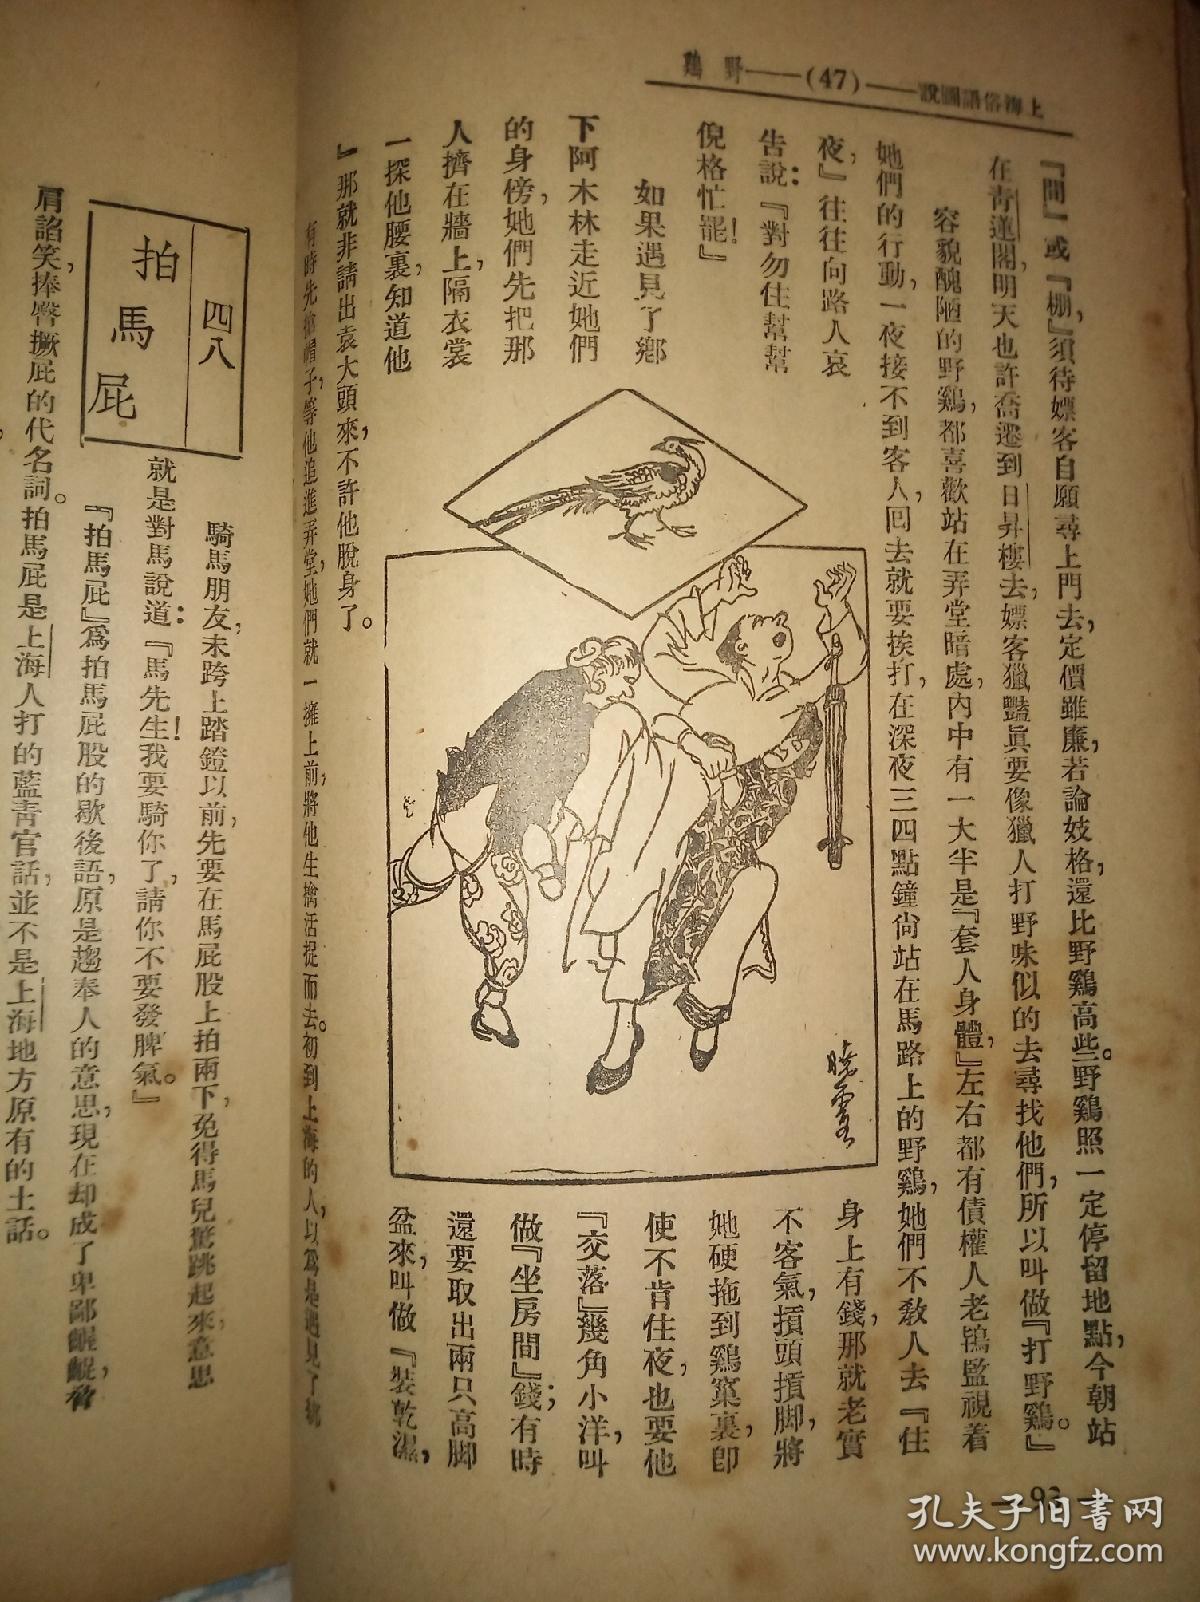 上海俗語圖說——(47)——野鷄
『間』或『棚』，須待嫖客自願尋上門去，定價雖廉，若論妓格，還比野鷄高些。野鷄照一定停留地點，今朝站
在青蓮閣，明天也許喬遷到日昇樓去，嫖客獵豔眞要像獵人打野味似的去尋找他們，所以叫做『打野鷄。』
容貌醜陋的野鷄，都喜歡站在弄堂暗處，內中有一大半是『套人身體，』左右都有債權人老鴇監視着
她們的行動，一夜接不到客人，回去就要挨打，在深夜三四點鐘尙站在馬路上的野鷄，她們不敎人去『住
夜，』往往向路人哀
告說：『對勿住幫幫
倪格忙罷！』
如果遇見了鄉
下阿木林走近她們
的身傍，她們先把那
人擠在牆上，隔衣裳
一探他腰裏，知道他
身上有錢，那就老實
不客氣，摃頭摃脚，將
她硬拖到鷄窠裏，卽
使不肯住夜，也要他
『交落』幾角小洋，叫
做『坐房間』錢；有時
還要取出兩只高脚
盆來，叫做『裝乾濕，
』那就非請出袁大頭來，不許他脫身了。
有時先搶帽子，等他追進弄堂，她們就一擁上前，將他生擒活捉而去。初到上海的人，以爲是遇見了
曉霞
— 93 —
四八
拍馬屁
騎馬朋友，未跨上踏鐙以前，先要在馬屁股上拍兩下，免得馬兒驚跳起來，意思
就是對馬說道：『馬先生！我要騎你了，請你不要發脾氣。』
『拍馬屁』爲拍馬屁股的歇後語，原是趨奉人的意思，現在却成了卑鄙齷齪，脅
肩諂笑，捧臀撅屁的代名詞。拍馬屁是上海人打的藍靑官話，並不是上海地方原有的土話。
孔夫子旧书网
www.kongfz.com